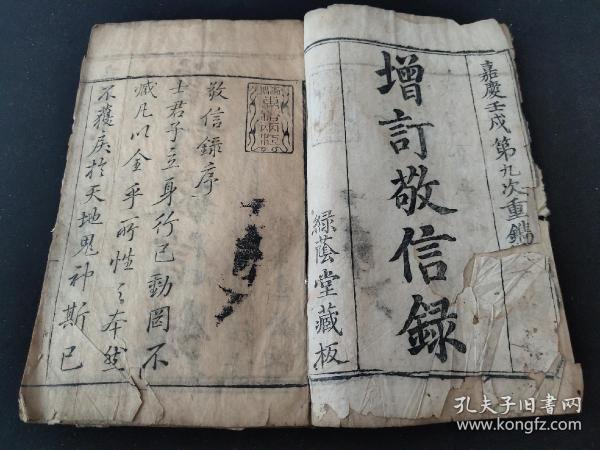 嘉慶壬戌第九次重鐫
增訂敬信錄
綠蔭堂藏板
敬信錄序
士君子立身行己動罔不
臧凡以全乎所性之本然
不獲戾於天地鬼神斯已
孔夫子旧书网
www.kongfz.com